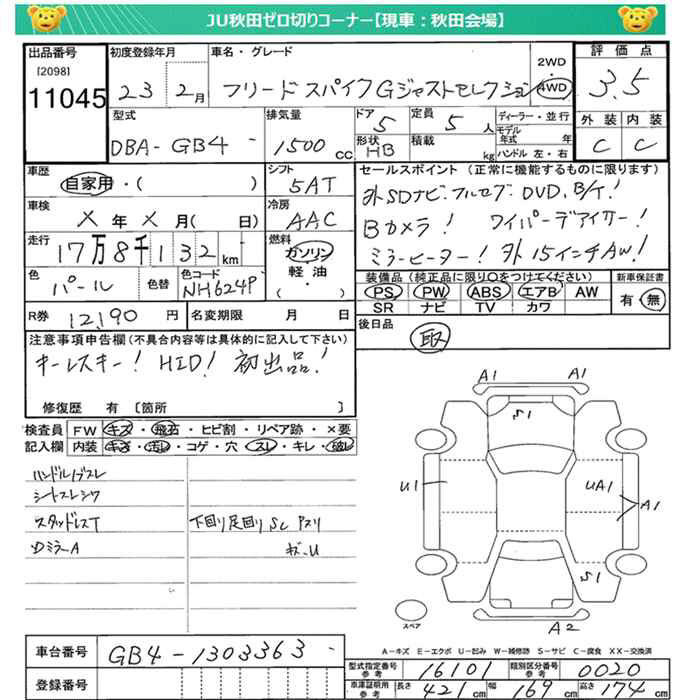 JU秋田ゼロ切りコーナー【現車：秋田会場】
出品番号
[2098]
11045
初度登録年月
23 2月
車名・グレード
フリードスパイクGジャストセレクション
2WD
4WD
評価点
3.5
外装 内装
C C
型式
DBA-GB4
排気量
1500 cc
ドア
5
形状
HB
定員
5 人
積載
kg
ディーラー・並行
モデル年式 年
ハンドル 左・右
車歴
自家用・( )
車検
X 年 X 月( 日)
走行
17万8千132 km
色
パール
色替
色コード
NH624P
シフト
5AT
冷房
AAC
燃料
ガソリン
軽油
( )
セールスポイント（正常に機能するものに限ります）
外SDナビ.フルセグ.DVD.B/T!
Bカメラ! ワイパーデアイサー!
ミラーヒーター! 外15インチAW!
装備品（純正品に限り〇をつけてください）
PS PW ABS エアB AW
SR ナビ TV カワ
新車保証書
有・無
R券 12,190 円
名変期限 月 日
後日品
取
注意事項申告欄(不具合内容等は具体的に記入して下さい)
キーレスキー! HID! 初出品!
修復歴 有 [箇所 ]
検査員記入欄
FW キズ・飛石・ヒビ割・リペア跡・×要
内装 キズ・汚レ・コゲ・穴・スレ・キレ・破レ
ハンドル/ブスレ
シートスレシワ
スタッドレスT
下回り足回りSC
ドミラーA
A1 A1
S1
U1
UA1
A1
S1
スペア
A2
A-キズ E-エクボ U-凹み W-補修跡 S-サビ C-腐食 XX-交換済
車台番号
GB4-1303363
登録番号
型式指定番号 参考
16101
類別区分番号 参考
0020
車庫証明用 参考
長さ 421 cm
幅 169 cm
高さ 174 cm